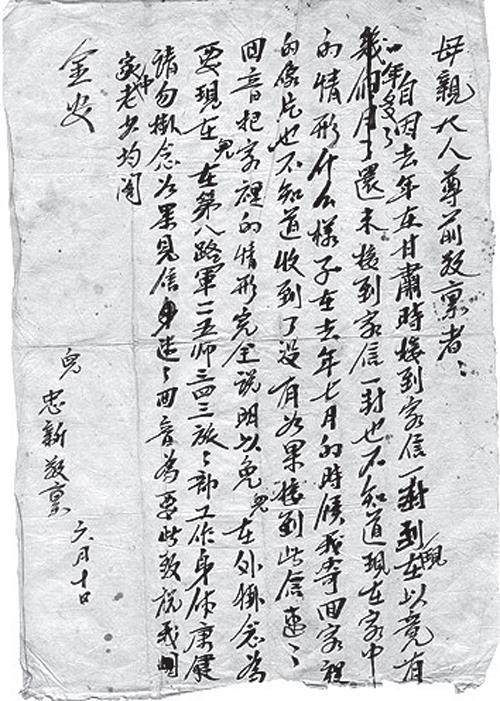 母親大人尊前敬稟者:
自因去年在甘肅時接到家信一封到現在以竟有
一年多了還未接到家信一封也不知道現在家中
的情形什么樣子在去年七月的時候我寄回家裡
的像片也不知道收到了没有如果接到此信速:
回音把家裡的情形完全説明以免兒在外掛念為
要現在兒在第八路軍一一五師三四三旅:部工作身体康健
請勿掛念如果見信速:回音為要此致祝我
家中老少均閤
金安
兒 忠新敬稟 六月十日